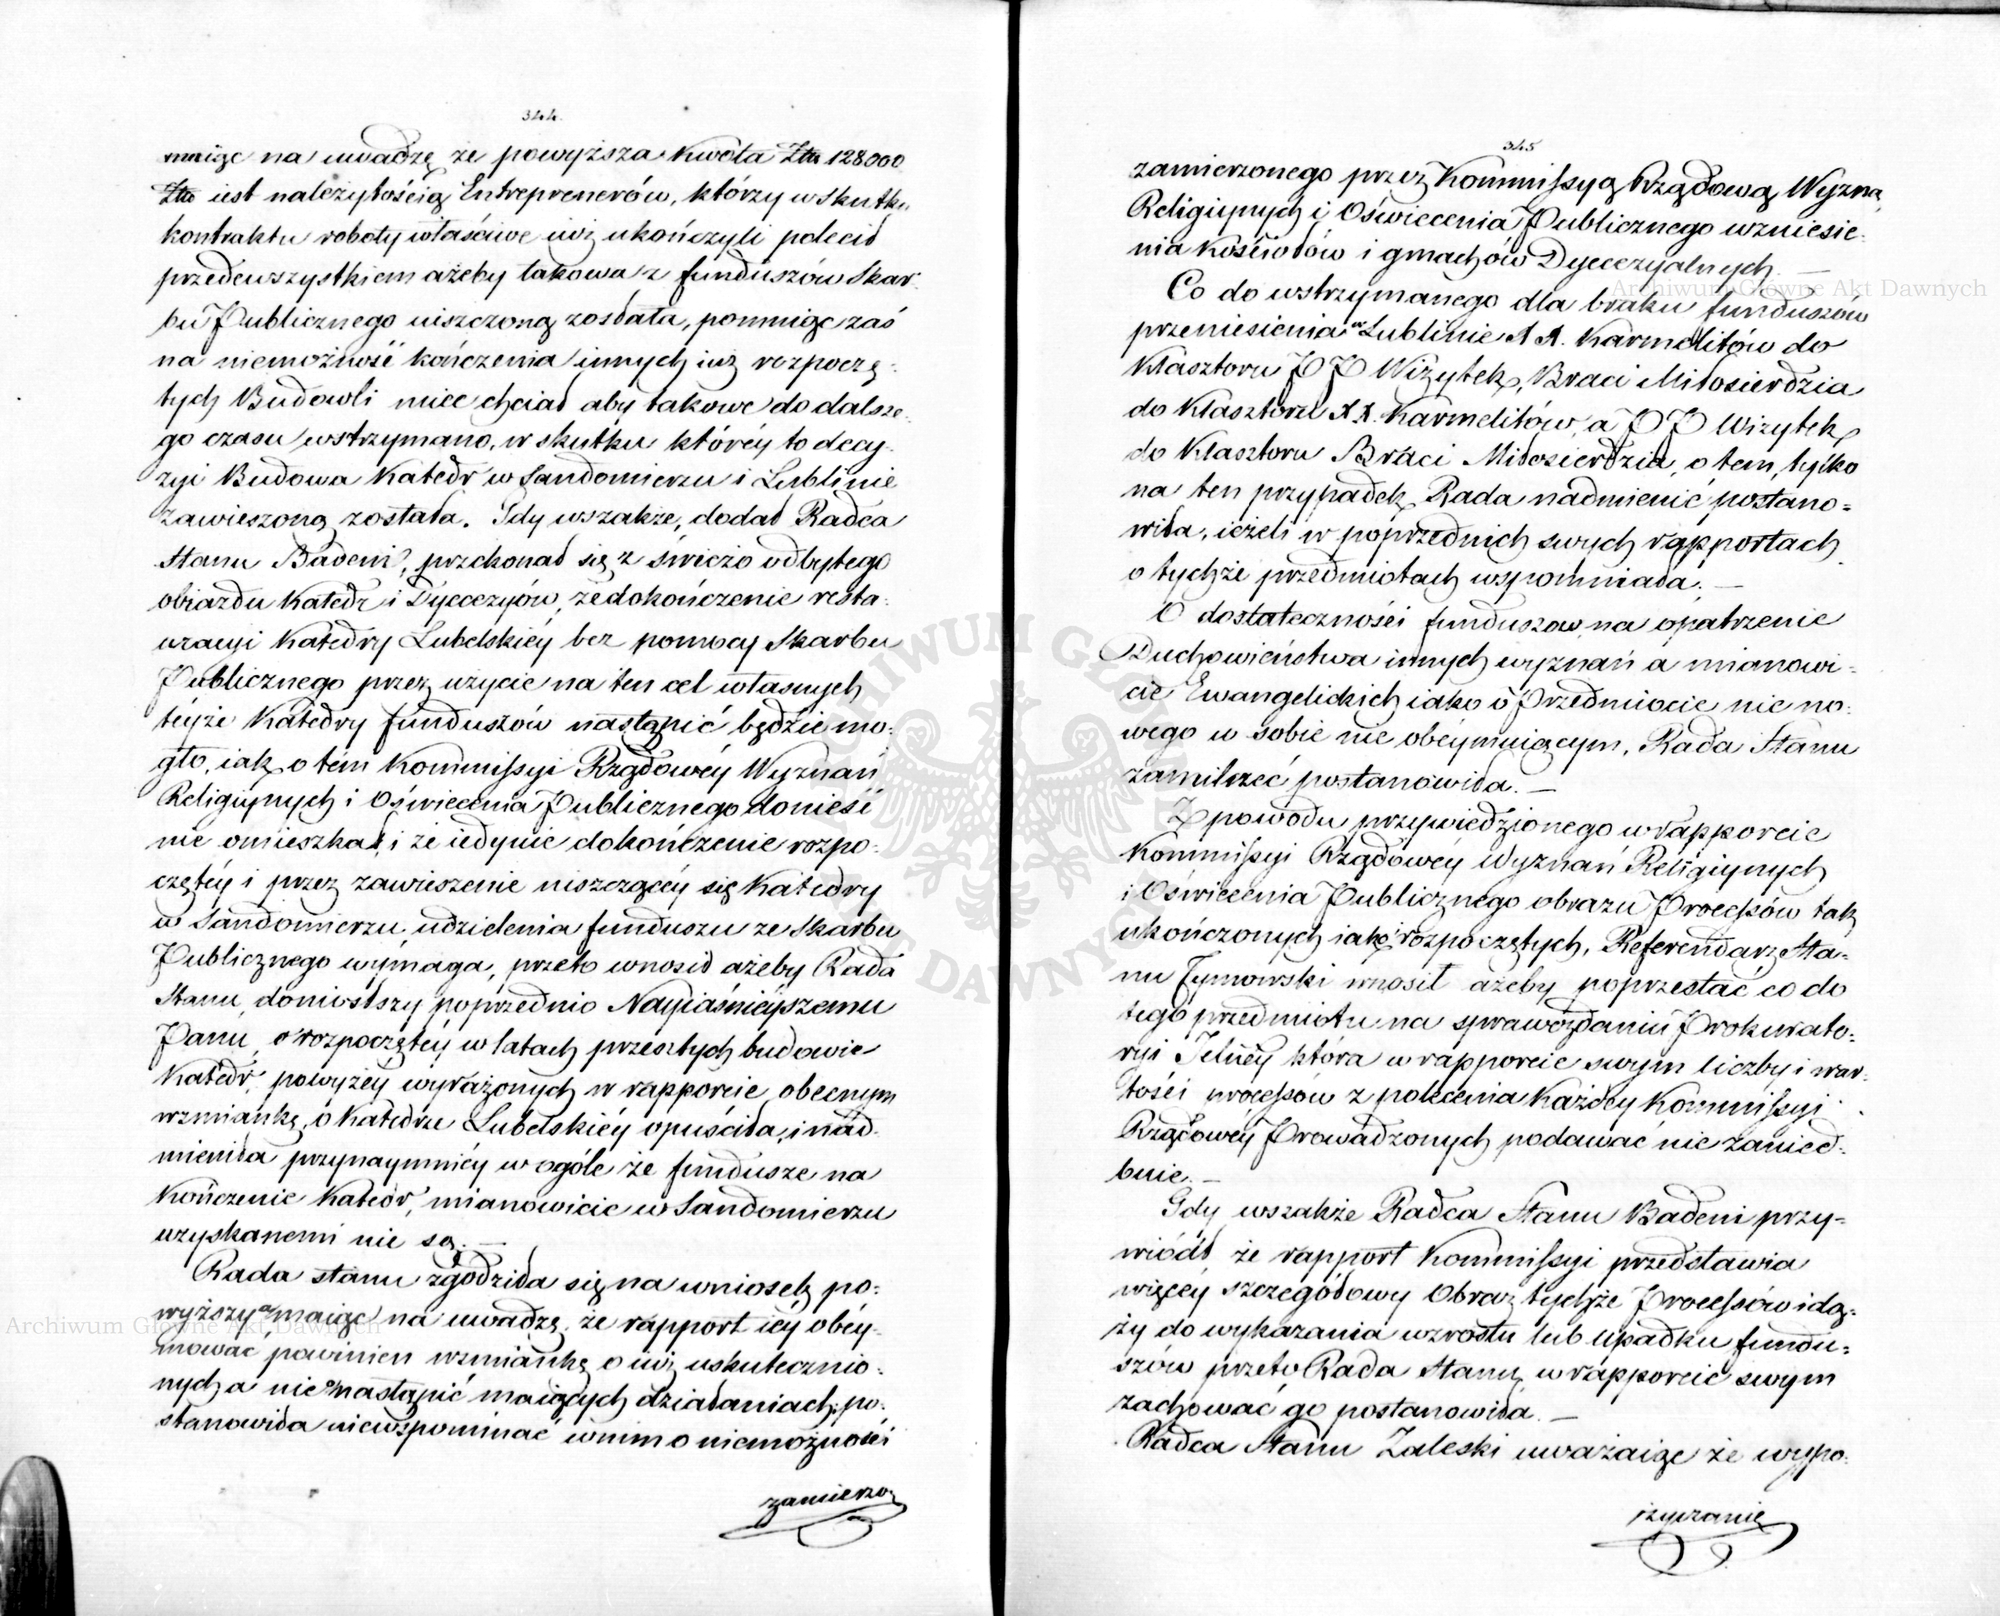 344.
maiąc na uwadzę że powyższa kwota Złtn 128000
Złtn iest należytością Entreprenerów, którzy w skutku
kontraktu roboty właściwe iuż ukończyli polecił
przedewszystkiem ażeby takowa z funduszów Skar-
bu Publicznego uiszczoną została, pomniąc zaś
na niemożność kończenia innych iuż rozpoczę-
tych Budowli miec chciał aby takowe do dalsze-
go czasu wstrzymano, w skutku któréy to decy-
zyi Budowa Katedr w Sandomierzu i Lublinie
zawieszoną została. Gdy wszakże, dodał Radca
Stanu Badeni, przekonał się z świeżo odbytego
obiazdu Katedr i Dyecezyów, że dokończenie resta-
uracyi Katedry Lubelskiéy bez pomocy Skarbu
Publicznego przez użycie na ten cel własnych
téyże Katedry funduszów nastąpić będzie mo-
gło, iak o tém Kommissyi Rządowéy Wyznań
Religiynych i Oświecenia Publicznego donieść
nie omieszkał i że iedynie dokończenie rozpo-
czętéy i przez zawieszenie niszczącéy się Katedry
w Sandomierzu, udzielenia funduszu ze Skarbu
Publicznego wymaga, przeto wnosił ażeby Rada
Stanu, doniósłszy poprzednio Nayiaśnieyszemu
Panu, o rozpoczętéy w latach przeszłych budowie
Katedr, powyżéy wyrażonych w rapporcie obecnym
wzmiankę, o Katedrze Lubelskiéy opuściła, i nad-
mieniła przynaymniéy w ogóle że fundusze na
kończenie Katedr, mianowicie w Sandomierzu
uzyskanemi nie są. —
Rada stanu zgodziła się na wniosek po-
wyższy a maiąc na uwadzę, że rapport iéy obéy-
mować powinien wzmiankę o iuż uskutecznio-
nych a nie nastąpić maiących działaniach, po-
stanowiła niewspominać w nim o niemożności
zamierzo-
345
zamierzonego przez Kommissyą Rządową Wyzna
Religiynych i Oświecenia Publicznego wzniesie-
nia kościołów i gmachów Dyecezyalnych. —
Co do wstrzymanego dla braku funduszów
przeniesienia w Lublinie XX. Karmelitów do
Klasztoru PP Wizytek, Braci Miłosierdzia
do Klasztoru XX. Karmelitów, a PP Wizytek
do Klasztoru Braci Miłosierdzia, o tem, tylko
na ten przypadek Rada nadmienić postano-
wiła, ieżeli w poprzednich swych rapportach
o tychże przedmiotach wspomniała. —
O dostateczności funduszow na opatrzenie
Duchowieństwa innych wyznań a mianowi-
cie Ewangelickich iako o Przedmiocie nic no-
wego w sobie nie obéymuiącym, Rada Stanu
zamilczeć postanowiła. —
Z powodu przywiedzionego w rapporcie
Kommissyi Rządowéy Wyznań Religiynych
i Oświecenia Publicznego obrazu Processów tak
ukończonych iako rozpoczętych, Referendarz Sta-
nu Tymowski wnosił ażeby poprzestać co do
tego przedmiotu na sprawozdaniu Prokurato-
ryi Jelnéy która w rapporcie swym liczby i war-
tości processów z polecenia każdéy Kommissyi
Rządowéy Prowadzonych podawać nie zanied-
buie. —
Gdy wszakże Radca Stanu Badeni przy-
wiódł, że rapport Kommissyi przedstawia
więcéy szczegółowy Obraz tychże Processów i dą-
ży do wykazania wzrostu lub upadku fundu-
szów przeto Rada Stanu, w rapporcie swym
zachować go postanowiła. —
Radca Stanu Zaleski uważaiąc że wypo-
życzanie